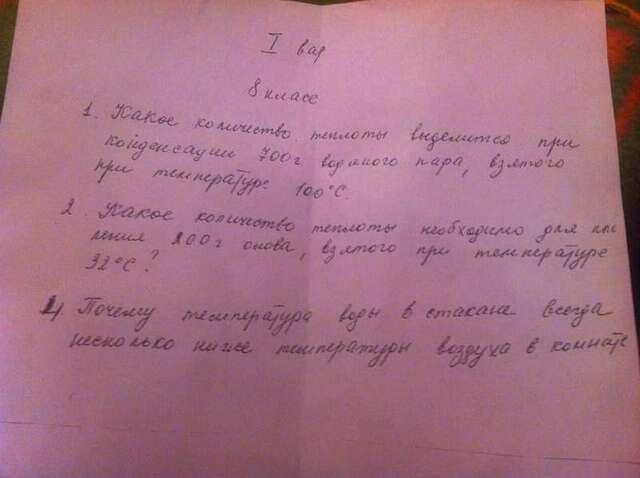 I вар
8 класс
1. Какое количество теплоты выделится при
конденсации 700г водяного пара, взятого
при температуре 100°С.
2. Какое количество теплоты необходимо для пла
вления 200г олова, взятого при температуре
32°С?
4 Почему температура воды в стакане всегда
несколько ниже температуры воздуха в комнате